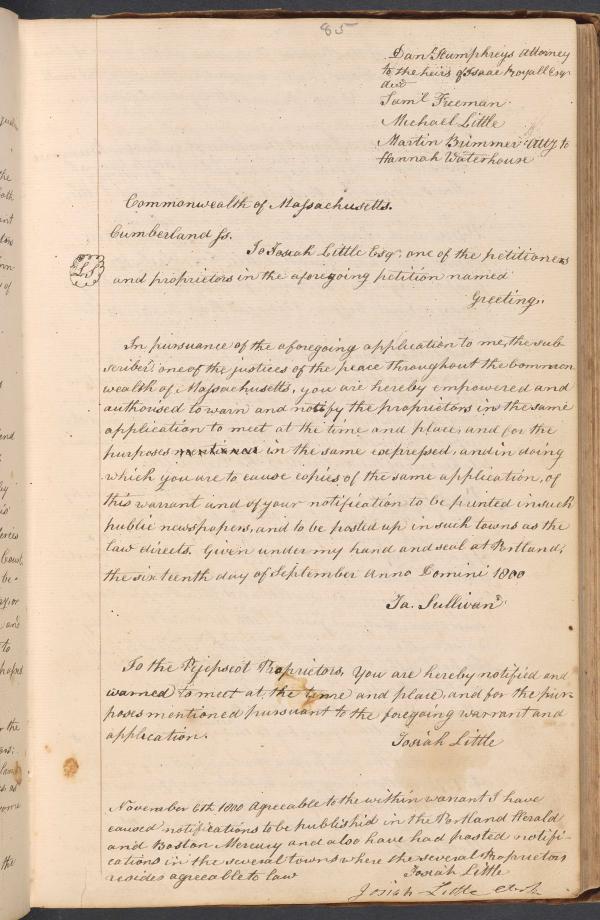 85
Danl Humphreys Attorney
to the heirs of Isaac Royall Esqr
decd
Saml Freeman
Michael Little
Martin Brimmer Atty to
Hannah Waterhouse
Commonwealth of Massachusetts.
Cumberland ss.
LS
To Josiah Little Esqr. one of the petitioners
and proprietors in the aforegoing petition named
Greeting.
In pursuance of the aforegoing application to me, the sub
scriber, one of the justices of the peace throughout the Common
wealth of Massachusetts, you are hereby empowered and
authorised to warn and notify the proprietors in the same
application to meet at the time and place, and for the
purposes in the same expressed, and in doing
which you are to cause copies of the same application, of
this warrant and of your notification to be printed in such
public newspapers, and to be posted up in such towns as the
law directs. Given under my hand and seal at Portland,
the sixteenth day of September Anno Domini 1800
Ja. Sullivan
To the Pejepscot Proprietors, You are hereby notified and
warned to meet at, the time and place, and for the pur-
poses mentioned pursuant to the foregoing warrant and
application.
Josiah Little
November 6th 1800 Agreeable to the within warrant I have
caused notifications to be publishid in the Portland Herald
and Boston Mercury and also have had posted notifi-
cations in the several towns where the several Proprietors
resides agreeable to law
Josiah Little
Josiah Little Clerk